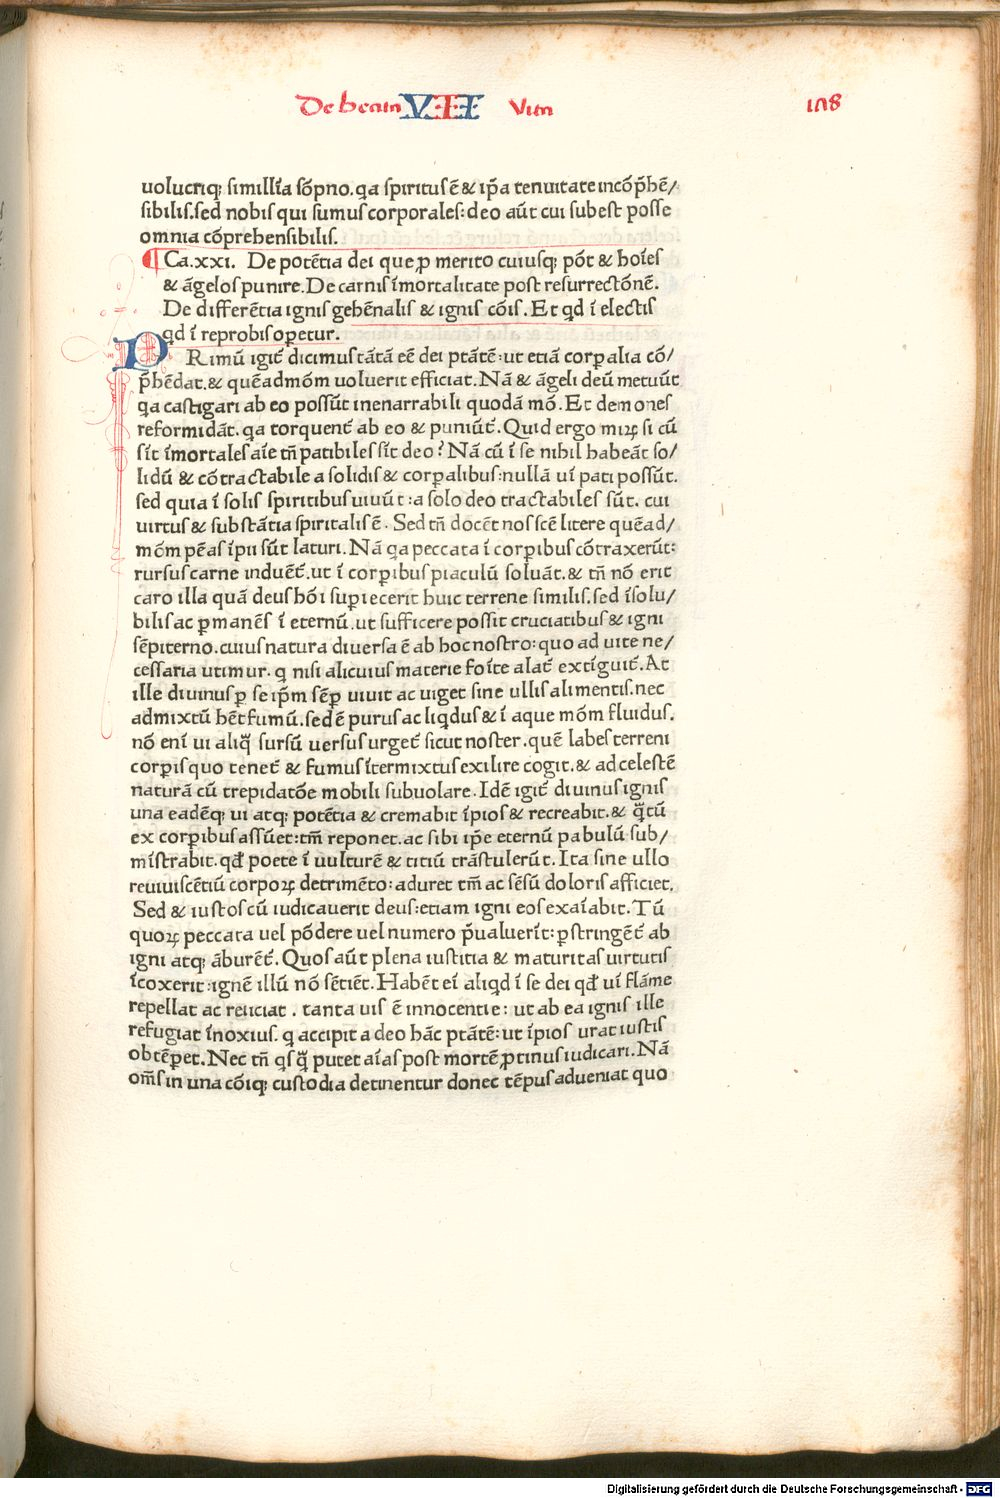 De beatu VII Vita 108
uolucriq; simillīa sōpno.qa spiritus ē & ip̄a tenuitate incōp̄hē/
sibilis.sed nobis qui sumus corporales: deo aūt cui subest posse
omnia cōprehensibilis.
¶ Ca.xxi. De potētia dei que ꝑ merito cuiusq; pōt & hoīes
& āgelos punire. De carnis īmortalitate post resurrectōnē.
De differētia ignis gehēnalis & ignis cōis. Et qd ī electis
qd ī reprobis oꝑetur.
PRimū igit̄ dicimus tātā eē dei ptātē: ut etiā corꝑalia cō/
p̄hēdat.& quēadmōm uoluerit efficiat. Nā & āgeli deū metuūt
qa castigari ab eo possūt inenarrabili quodā mō. Et demones
reformidāt. qa torquent̄ ab eo & puniūt̄. Quid ergo miꝝ si cū
sīt īmortales aīe tn̄ patibiles sīt deo? Nā cū ī se nihil habeāt so/
lidū & cōtractabile a solidis & corꝑalibus: nullā uī pati possūt.
sed quia ī solis spiritibus uiuūt: a solo deo tractabiles sūt. cui
uirtus & substātia spiritalis ē. Sed tn̄ docēt nos scē litere quēad/
mōm pēas īpii sūt laturi. Nā qa peccata ī corꝑibus cōtraxerūt:
rursus carne induēt̄. ut ī corꝑibus piaculū soluāt. & tn̄ nō erit
caro illa quā deus hōi suꝑiecerit huic terrene similis. sed īsolu/
bilis ac ꝑmanēs ī eternū. ut sufficere possit cruciatibus & igni
sēpiterno. cuius natura diuersa ē ab hoc nostro: quo ad uite ne/
cessaria utimur. q nisi alicuius materie foīte alat̄ extīguit̄. At
ille diuinus ꝑ se ip̄m sēꝑ uiuit ac uiget sine ullis alimentis. nec
admixtū hēt fumū. sed ē purus ac liqdus & ī aque mōm fluidus.
nō enī ui aliq̄ sursū uersus urget̄ sicut noster. quē labes terreni
corꝑis quo tenet̄ & fumus ītermixtus exilire cogit. & ad celestē
naturā cū trepidatōe mobili subuolare. Idē igit̄ diuinus ignis
una eadēq; ui atq; potētia & cremabit īpios & recreabit. & q̄tū
ex corꝑibus assūet: tm̄ reponet. ac sibi ip̄e eternū pabulū sub/
mīstrabit. qd̄ poete ī uulturē & titiū trāstulerūt. Ita sine ullo
reuiuiscētiū corpoꝝ detrimēto: aduret tm̄ ac sēsū doloris afficiet.
Sed & iustos cū iudicauerit deus: etiam igni eos exaīabit. Tū
quoꝝ peccata uel pōdere uel numero p̄ualuerīt: ꝑstringēt̄ ab
igni atq; āburēt̄. Quos aūt plena iustitia & maturitas uirtutis
īcoxerit: ignē illū nō sētiēt. Habēt eī aliqd ī se dei qd̄ uī flāme
repellat ac reiiciat. tanta uis ē innocentie: ut ab ea ignis ille
refugiat īnoxius. q accipit a deo hāc ptātē: ut īpios urat iustis
obtēꝑet. Nec tn̄ qsq̄ putet aīas post mortē ꝓtinus iudicari. Nā
om̄s in una cōiq; custodia detinentur donec tēpus adueniat quo
Digitalisierung gefördert durch die Deutsche Forschungsgemeinschaft - DFG